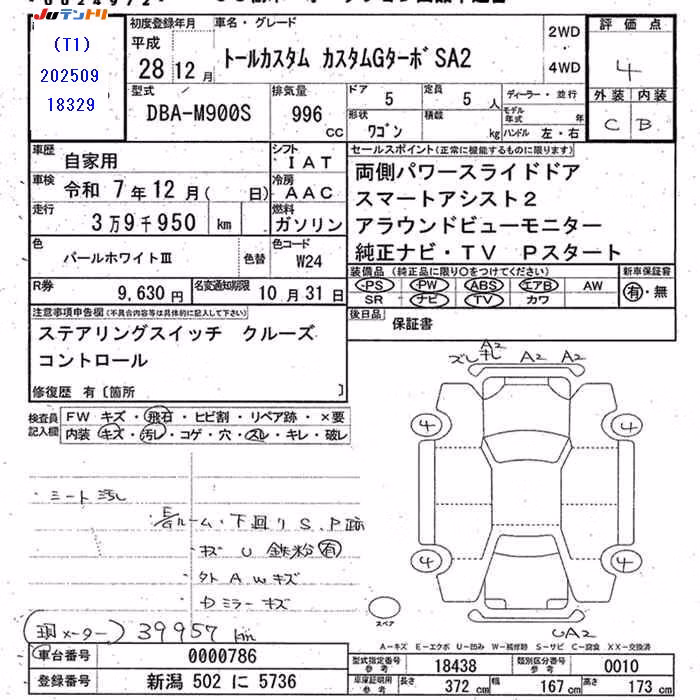 Juテントリ
(T1)
202509
18329
初度登録年月
平成
28年12月
車名・グレード
トールカスタム カスタムGターボSA2
2WD
・
4WD
評価点
4
外装 内装
C B
型式
DBA-M900S
排気量
996 CC
ドア 5
定員 5人
形状 ワゴン
積載 kg
ディーラー・並行
モデル年式 年
ハンドル 左・右
車歴 自家用
シフト IAT
車検 令和 7年12月( 日)
冷房 AAC
走行 3万9千950 km
燃料 ガソリン
色 パールホワイトⅢ
色替
色コード W24
R券 9,630円
名変通知期限 10月31日
セールスポイント(正常に機能するものに限ります)
両側パワースライドドア
スマートアシスト2
アラウンドビューモニター
純正ナビ・TV Pスタート
装備品(純正品に限り○をつけてください)
PS PW ABS エアB AW
SR ナビ TV カワ
新車保証書
有・無
後日品 保証書
注意事項申告欄(不具合内容等は具体的に記入して下さい)
ステアリングスイッチ クルーズ
コントロール
修復歴 有〔箇所 〕
検査員記入欄
FW キズ・飛石・ヒビ割・リペア跡・×要
内装・キズ・汚レ・コゲ・穴・スレ・キレ・破レ
・シート汚レ
・E/Gルーム・下回りS、P跡
キズU 鉄粉有
外AWキズ
ミラーキズ
(現メーター) 39957km
ズレ
A2
A2 A2
4 4
4 4
スペア
UA2
A-キズ E-エクボ U-凹み W-補修跡 S-サビ C-腐食 XX-交換済
車台番号 0000786
登録番号 新潟 502 に 5736
型式指定番号 参考 18438
類別区分番号 参考 0010
車庫証明用 参考 長さ 372cm 幅 167cm 高さ 173cm